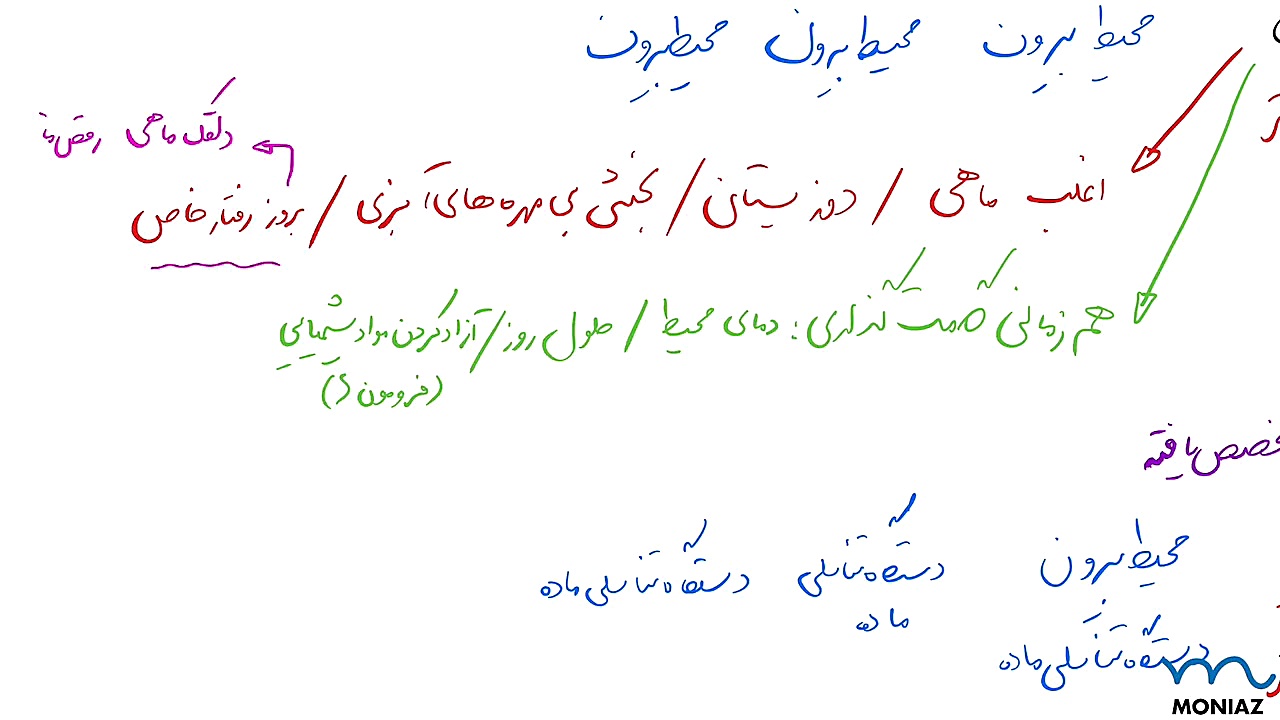 محیط بیرون محیط بیرون محیط بیرون
دلقک ماهی رقص ما
اغلب ماهی / دوزیستان / بخشی بی مهره های آبزی / بروز رفتار خاص
هم زمانی گامت گذاری : دمای محیط / طول روز / آزاد کردن مواد شیمیایی
(فرومون S)
تخصص یافته
محیط بیرون دستگاه تناسلی دستگاه تناسلی ماده
ماده
دستگاه تناسلی ماده
MONIAZ